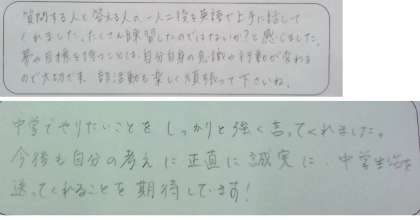 質問する人と答える人の一人二役を英語で上手に話して
くれました。たくさん練習したのではないか?と感じました。
夢や目標を持つことは、自分自身の意識や行動が変わる
ので大切です。部活動も楽しく頑張って下さいね。
中学でやりたいことを しっかりと強く言ってくれました。
今後も自分の考えに正直に誠実に、中学生活を
送ってくれることを期待しています!